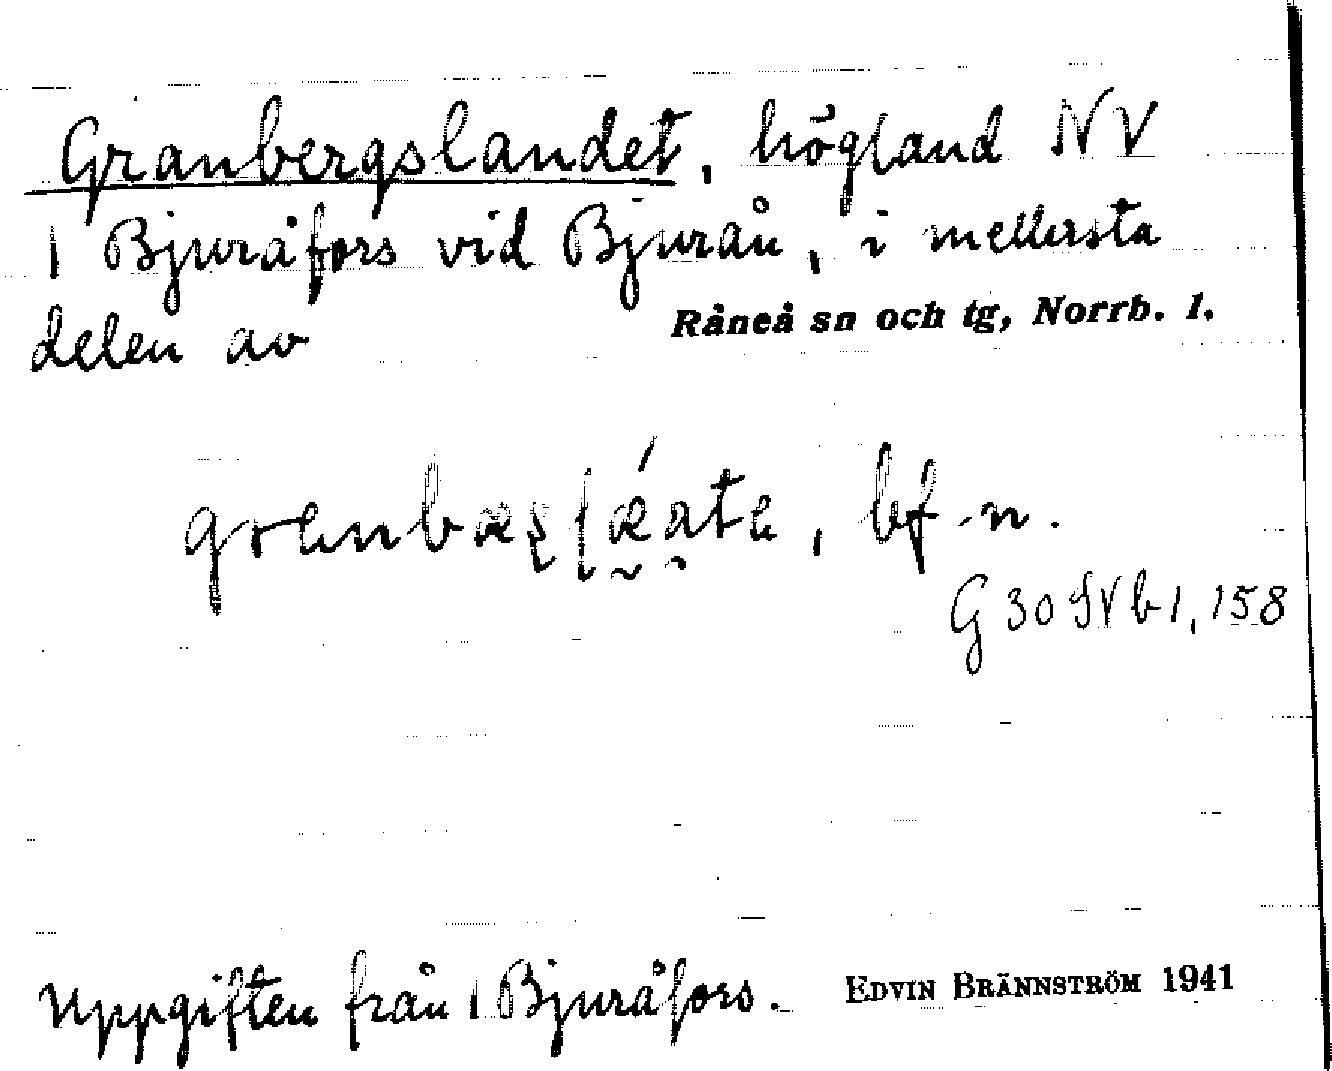 Granbergslandet, högland NV
1 Bjuråfors vid Bjurån, i mellersta
delen av Råneå sn och tg, Norrb. l.
bf. n.
G 30 NV b 1, 158
Uppgiften från 1 Bjuråfors. EDVIN BRÄNNSTRÖM 1941